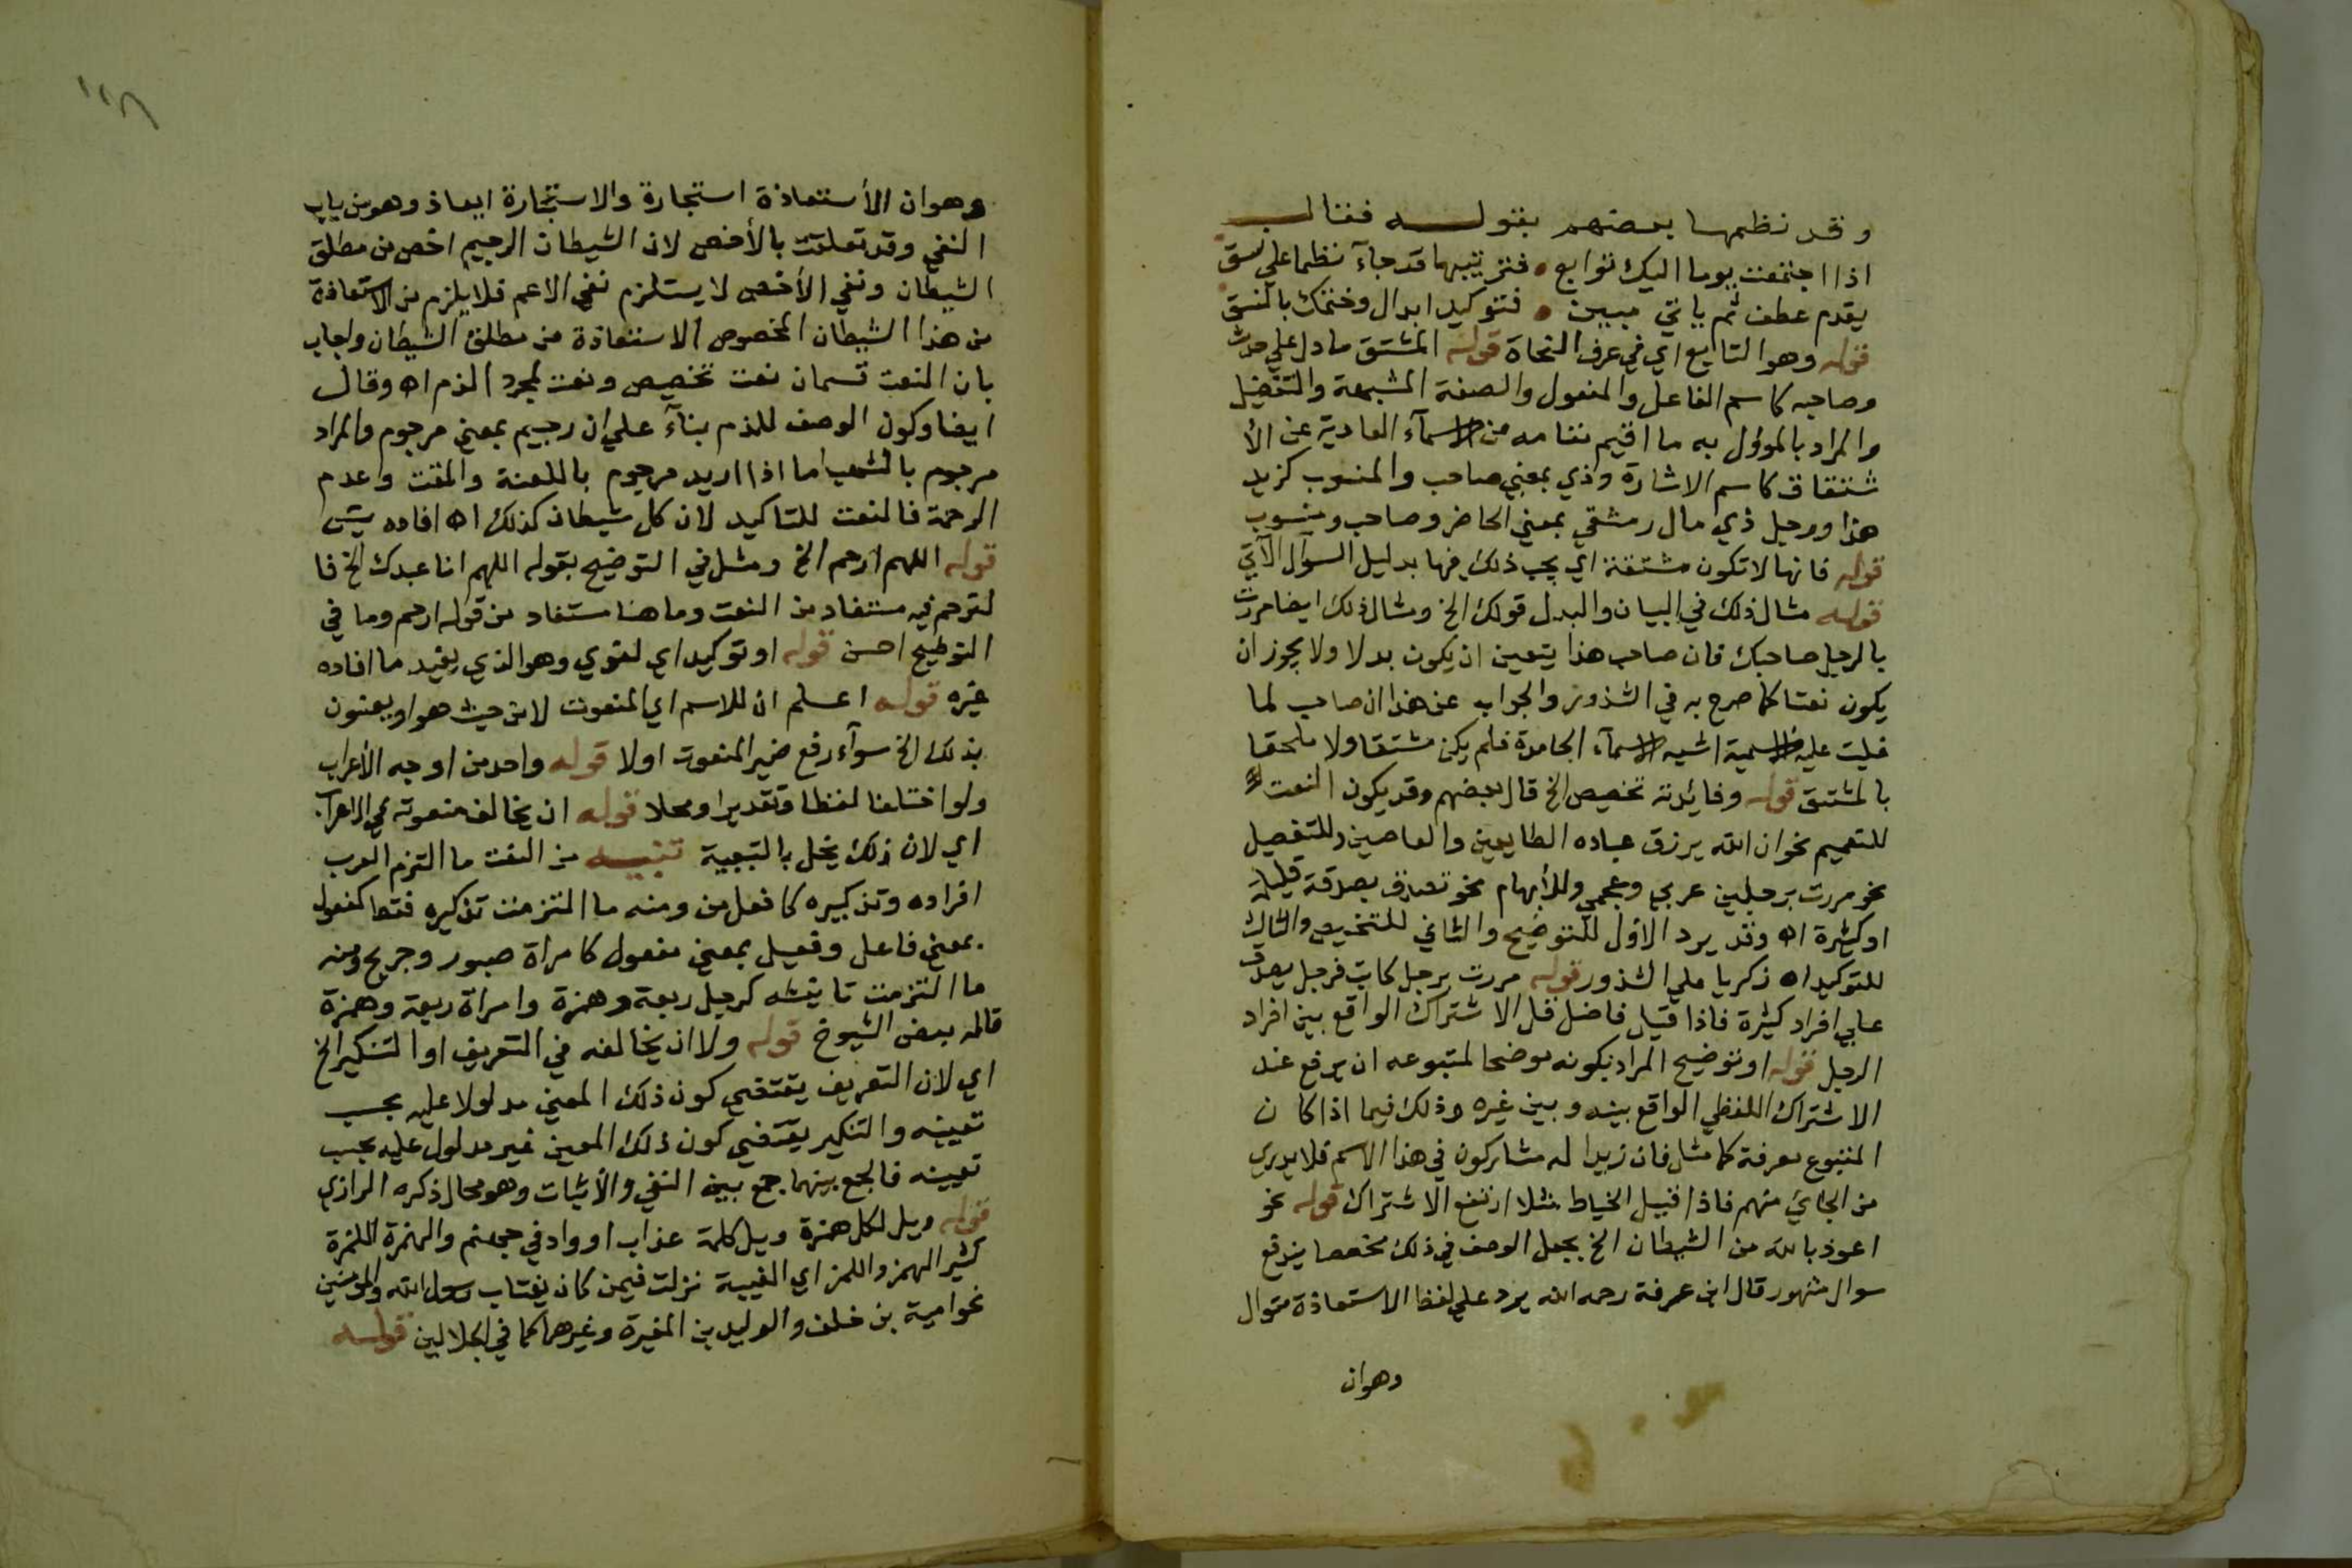 وقد نظمها بعضهم بقوله فقال
اذا اجتمعت يوما اليك توابع • فترتيبها قد جاء نظما علي نسق
يقدم عطف ثم ياتي مبين • فتوكيد ابدال وختمك بالنسق
قوله وهو التابع اي في عرف النحاة قوله المشتق ما دل علي حدث
وصاحبه كاسم الفاعل والمفعول والصفة المشبهة والتفضيل
والمراد بالموول به ما اقيم مقامه من الاسمآء العارية عن الأ
شتقاق كاسم الاشارة وذي بمعني صاحب والمنسوب كزيد
هذا ورجل ذي مال دمشقي بمعني الحاضر وصاحب ومنسوب
قوله فانها لا تكون مشتقة اي يجب ذلك فيها بدليل السوآل الآتي
قوله مثال ذلك في البيان والبدل قولك الخ ومثال ذلك ايضا مررت
بالرجل صاحبك فان صاحب هذا يتعين ان يكون بدلا ولا يجوز ان
يكون نعتا كما صرح به في الشذور والجواب عن هذا ان صاحب لما
غلبت عليه الاسمية اشبه الاسمآء الجامدة فلم يكن مشتقا ولا ملحقا
بالمشتق قوله وفائدته تخصيص الخ قال بعضهم وقد يكون النعت
للتعميم نحو ان الله يرزق عباده الطايعين والعاصين وللتفصيل
نحو مررت برجلين عربي وعجمي وللأبهام نحو تصدق بصدقة قليلة
او كثيرة اه وقد يرد الاول للتوضيح والثاني للتخصيص والثالث
للتوكيد اه زكريا علي الشذور قوله مررت برجل كاتب فرجل يصدق
علي افراد كثيرة فاذا قيل فاضل قل الاشتراك الواقع بين افراد
الرجل قوله او توضيح المراد بكونه موضحا لمتبوعه ان يرفع عند
الاشتراك اللفظي الواقع بينه وبين غيره وذلك فيما اذا كان
المتبوع معرفة كما مثل فان زيدا له مشاركون في هذا الاسم فلا يدري
من الجائي منهم فاذا قيل الخياط مثلا ارتفع الاشتراك قوله نحو
اعوذ بالله من الشيطان الخ بجعل الوصف في ذلك مخصصا يندفع
سوال مشهور قال ابن عرفة رحمه الله يرد علي لفظ الاستعاذة سوال
وهوان
وهوان الأستعاذة استجارة والاستجارة ابعاذ وهو من باب
النفي وقد تعلقت بالأخص لان الشيطان الرجيم اخص من مطلق
الشيطان ونفي الأخص لا يستلزم نفي الاعم فلا يلزم من الاستعاذة
من هذا الشيطان المخصوص الاستعاذة من مطلق الشيطان واجاب
بان النعت قسمان نعت تخصيص ونعت لمجرد الذم اه وقال
ايضا وكون الوصف للذم بنآء علي ان رجيم بمعني مرجوم والمراد
مرجوم بالشهب اما اذا اريد مرجوم باللعنة والمقت وعدم
الرحمة فالنعت للتاكيد لان كل شيطان كذلك اه افاده يس
قوله اللهم ارحم الخ ومثل في التوضيح بقوله اللهم انا عبدك الخ فا
لترحم فيه مستفاد من النعت وما هنا مستفاد من قوله ارحم وما في
التوضيح احسن قوله او توكيد اي لغوي وهو الذي يفيد ما افاده
غيره قوله اعلم ان للاسم اي المنعوت لا من حيث هو او يعنون
بذلك الخ سوآء رفع ضمير المنعوت اولا قوله واحد من اوجه الأعراب
ولو اختلفا لفظا وتقديرا ومحلا قوله ان يخالف منعوته في الاعراب
اي لان ذلك يخل بالتبعية تنبيه من النعت ما التزم العرب
افراده وتذكيره كافعل من ومنه ما التزمت تذكيره فقط كفعول
بمعني فاعل وفعيل بمعني مفعول كامراة صبور وجريح ومنه
ما التزمت تانيثه كرجل ربعة وهمزة وامراة ربعة وهمزة
قاله بعض الشيوخ قوله ولا ان يخالفه في التعريف او التنكير الخ
اي لان التعريف يقتضي كون ذلك المعين مدلولا عليه بحسب
تعيينه والتنكير يقتضي كون ذلك المعين غير مدلول عليه بحسب
تعيينه فالجمع بينهما جمع بين النفي والأثبات وهو محال ذكره الرازي
قوله ويل لكل همزة ويل كلمة عذاب او واد في جهنم والهمزة اللمزة
كثير الهمز واللمز اي الغيبة نزلت فيمن كان يغتاب رسول الله والمومنين
نحو امية بن خلف والوليد بن المغيرة وغيرهما كما في الجلالين قوله